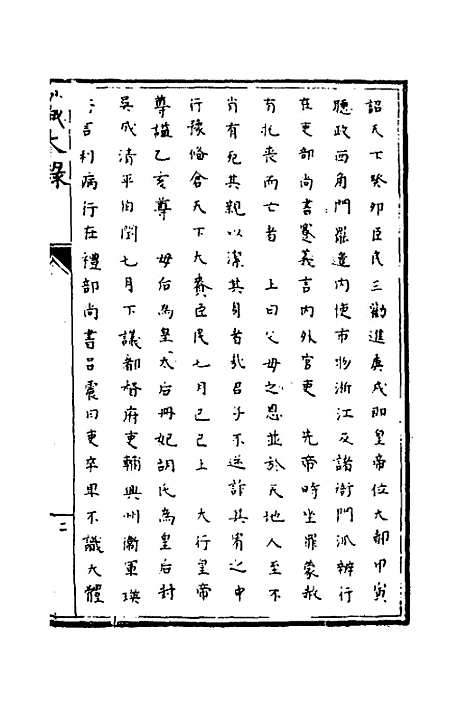 詔天下癸卯臣民三勸進庚戌即皇帝位大都甲寅
聽政西角門罷遣內使市物浙江及諸衙門派辦行
在吏部尚書蹇義言內外官吏　先帝時坐罪蒙赦
有犯喪而亡者　上曰父母之恩並於天地人至不
肖有死其親以潔其身者哉君子不逆詐其宥之中
行豫備倉天下大賚臣民七月己巳上　大行皇帝
尊諡乙亥尊　母后為皇太后冊妃胡氏為皇后封
吳成清平伯閏七月下議都督府吏輔興州衛軍瑛
言利病行在禮部尚書呂震曰吏卒卑不識大體
大錄
二